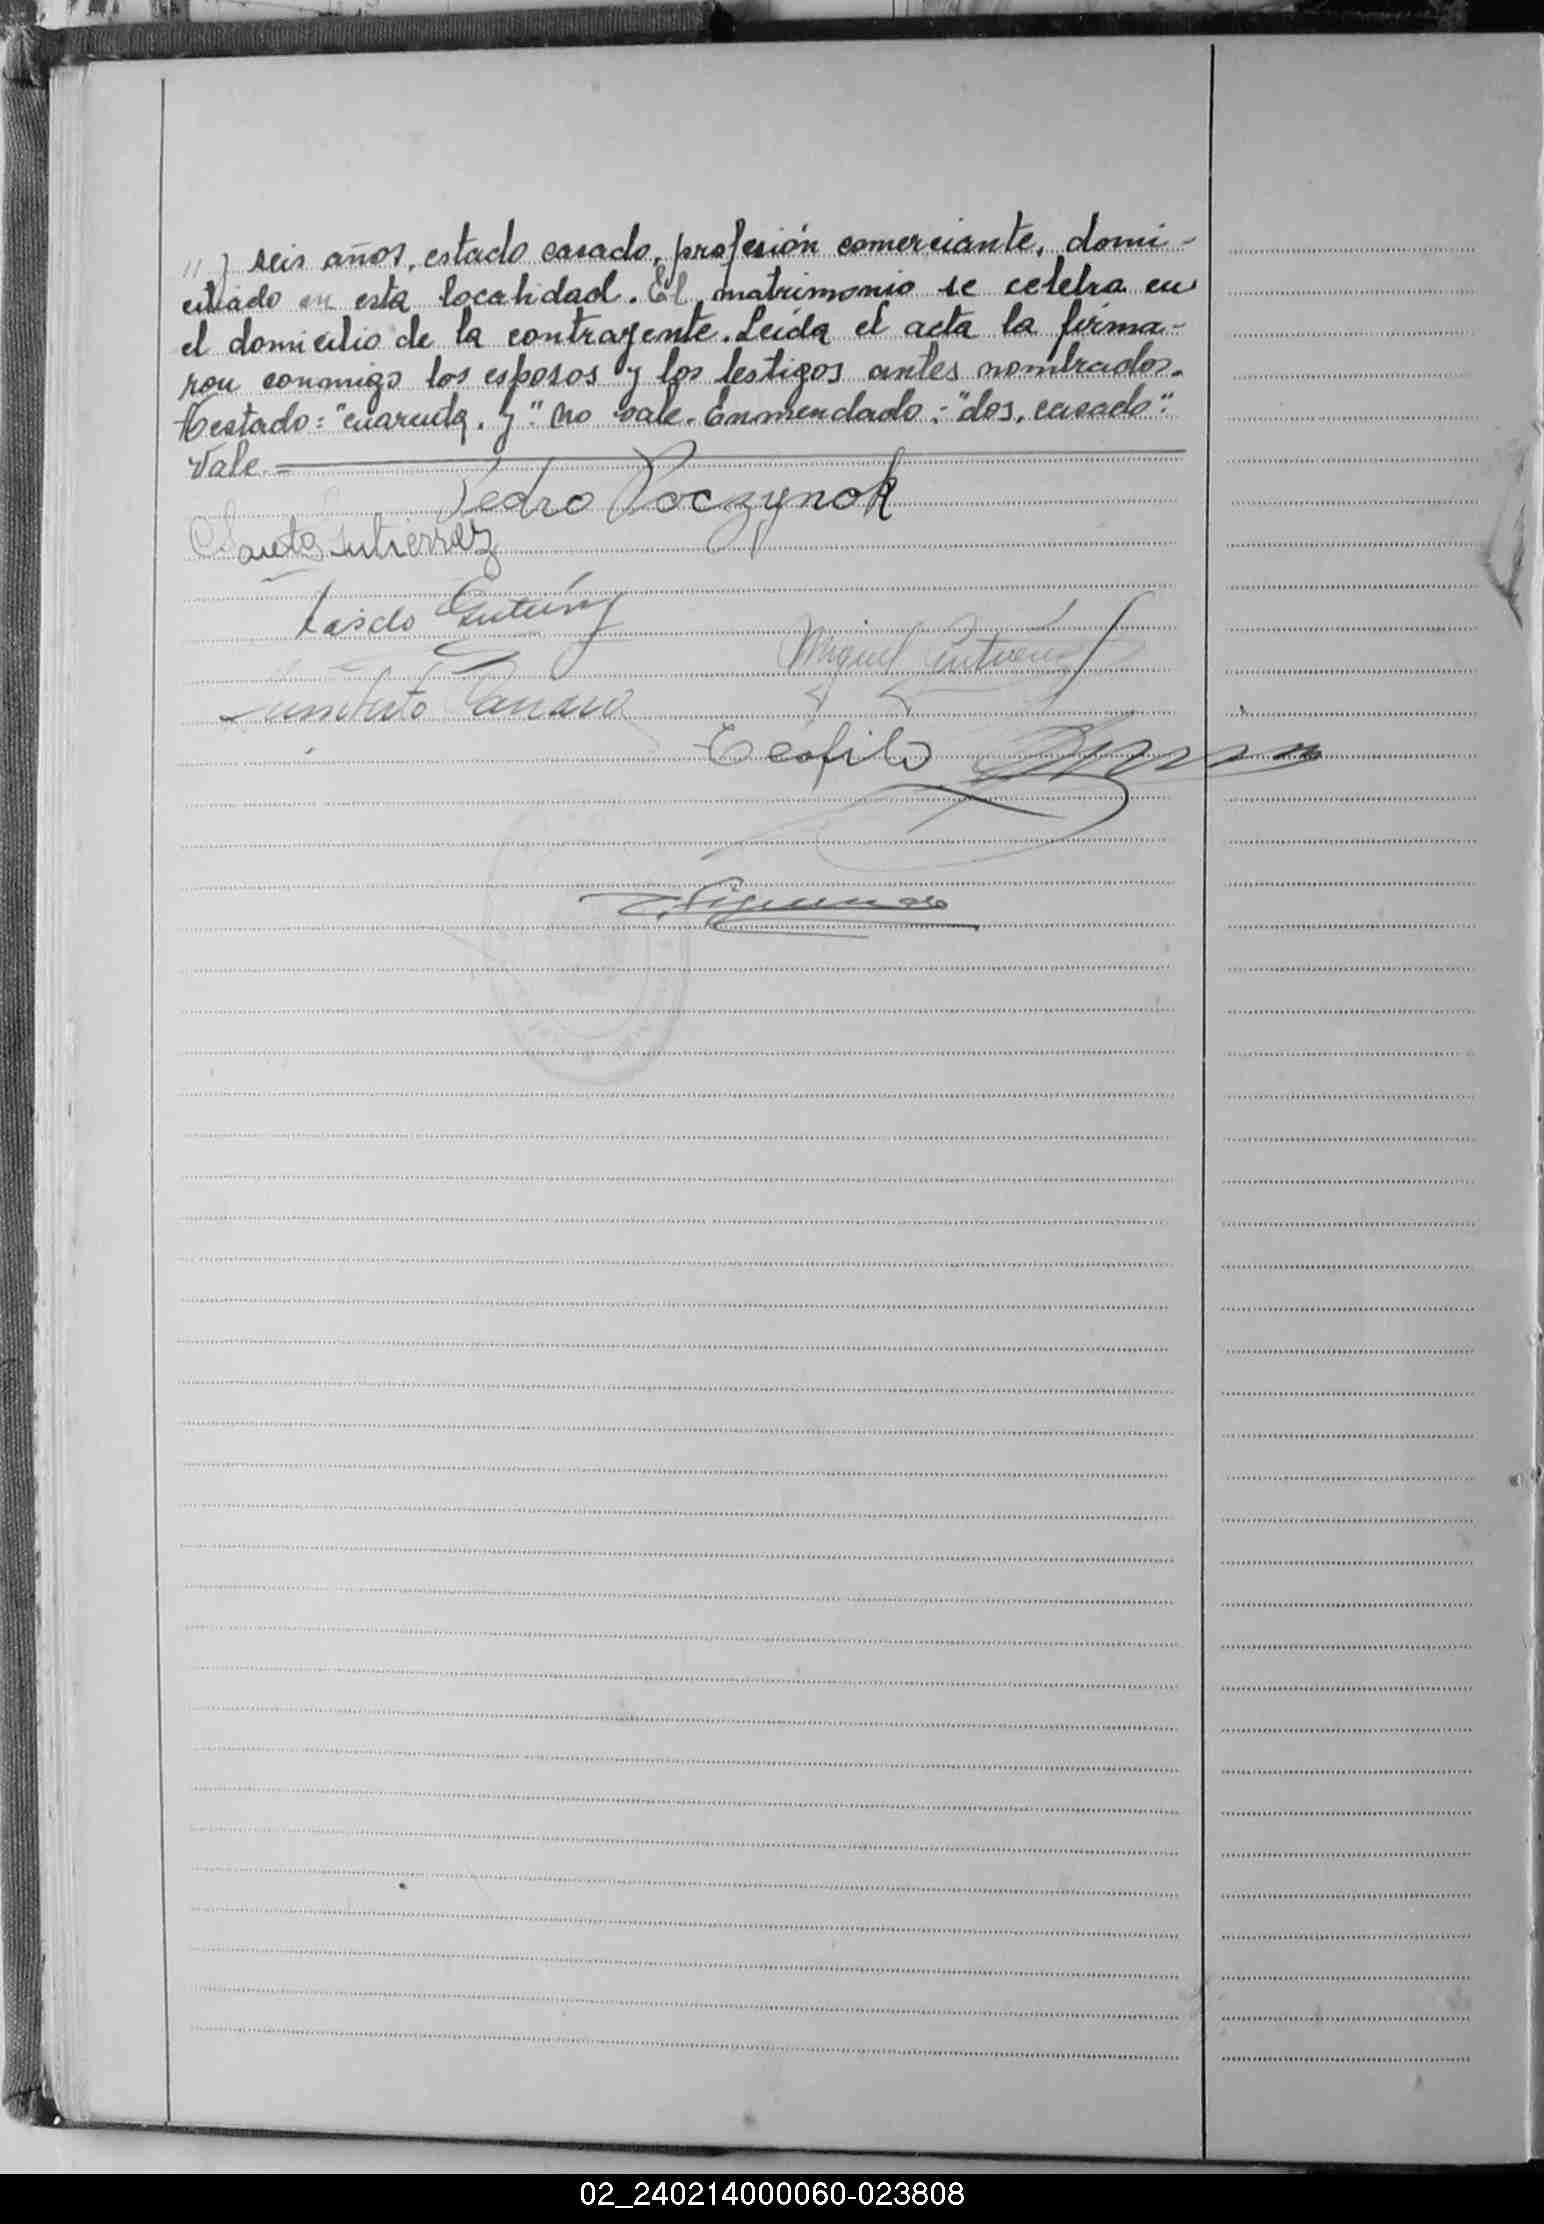 // y seis años, estado casado, profesión comerciante, domi-
ciliado en esta localidad. El matrimonio se celebra en
el domicilio de la contrayente. Leída el acta la firma-
ron conmigo los esposos y los testigos antes nombrados.
Testado: "cuarenta, y". No vale. Enmendado: "dos, casado".
Vale.
Pedro Poczynok
Santa Gutierrez
Miguel Gutiérrez
Teófilo
02_240214000060-023808